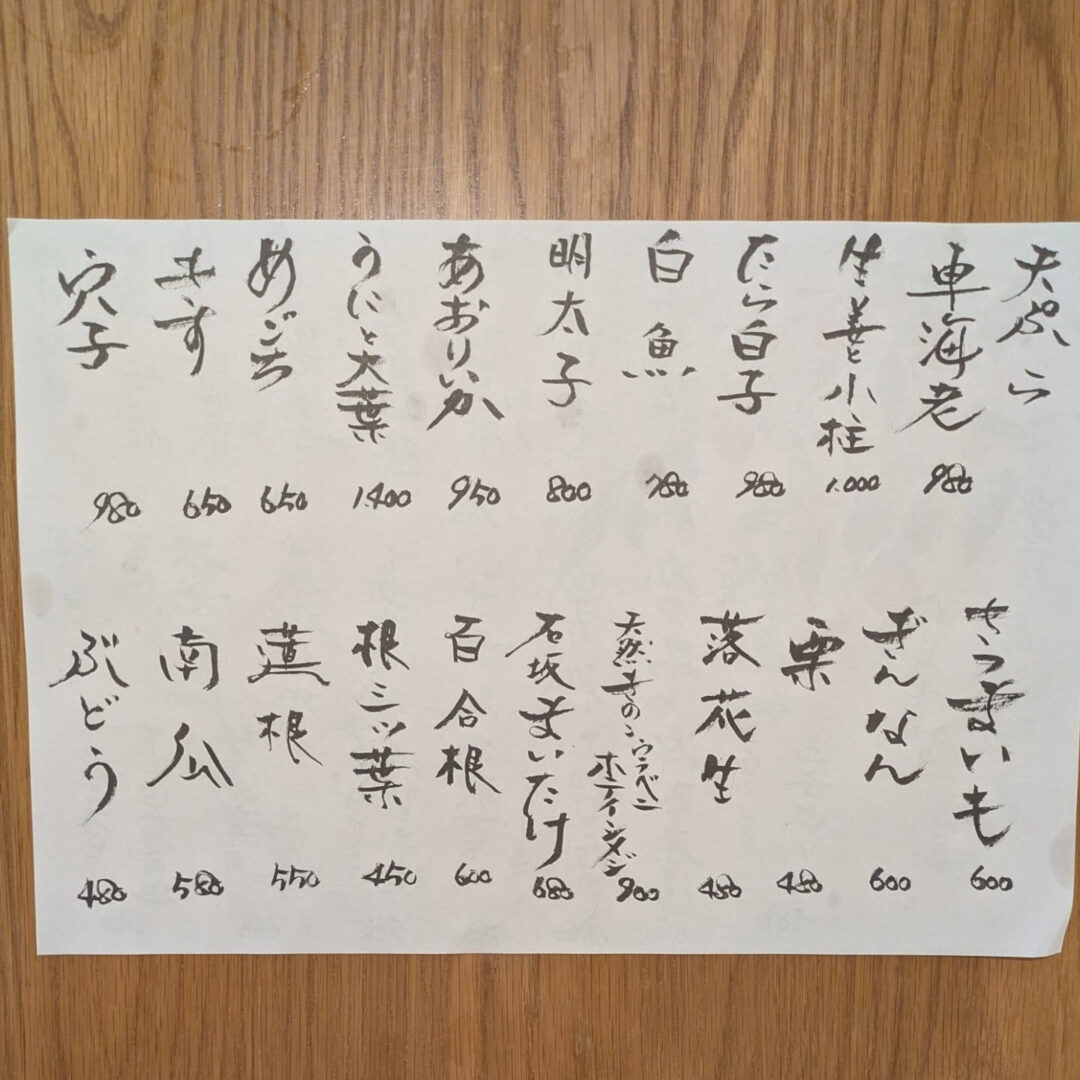 天ぷら
車海老 980
生姜と小柱 1.000
たら白子 980
白魚 780
明太子 800
あおりいか 950
うにと大葉 1.400
めごち 650
きす 650
穴子 980
さつまいも 600
ぎんなん 600
栗 480
落花生 480
天然きのこ ウラベニ
ホテイシメジ 900
石坂まいたけ 680
百合根 600
根三ッ葉 450
蓮根 550
南瓜 580
ぶどう 480